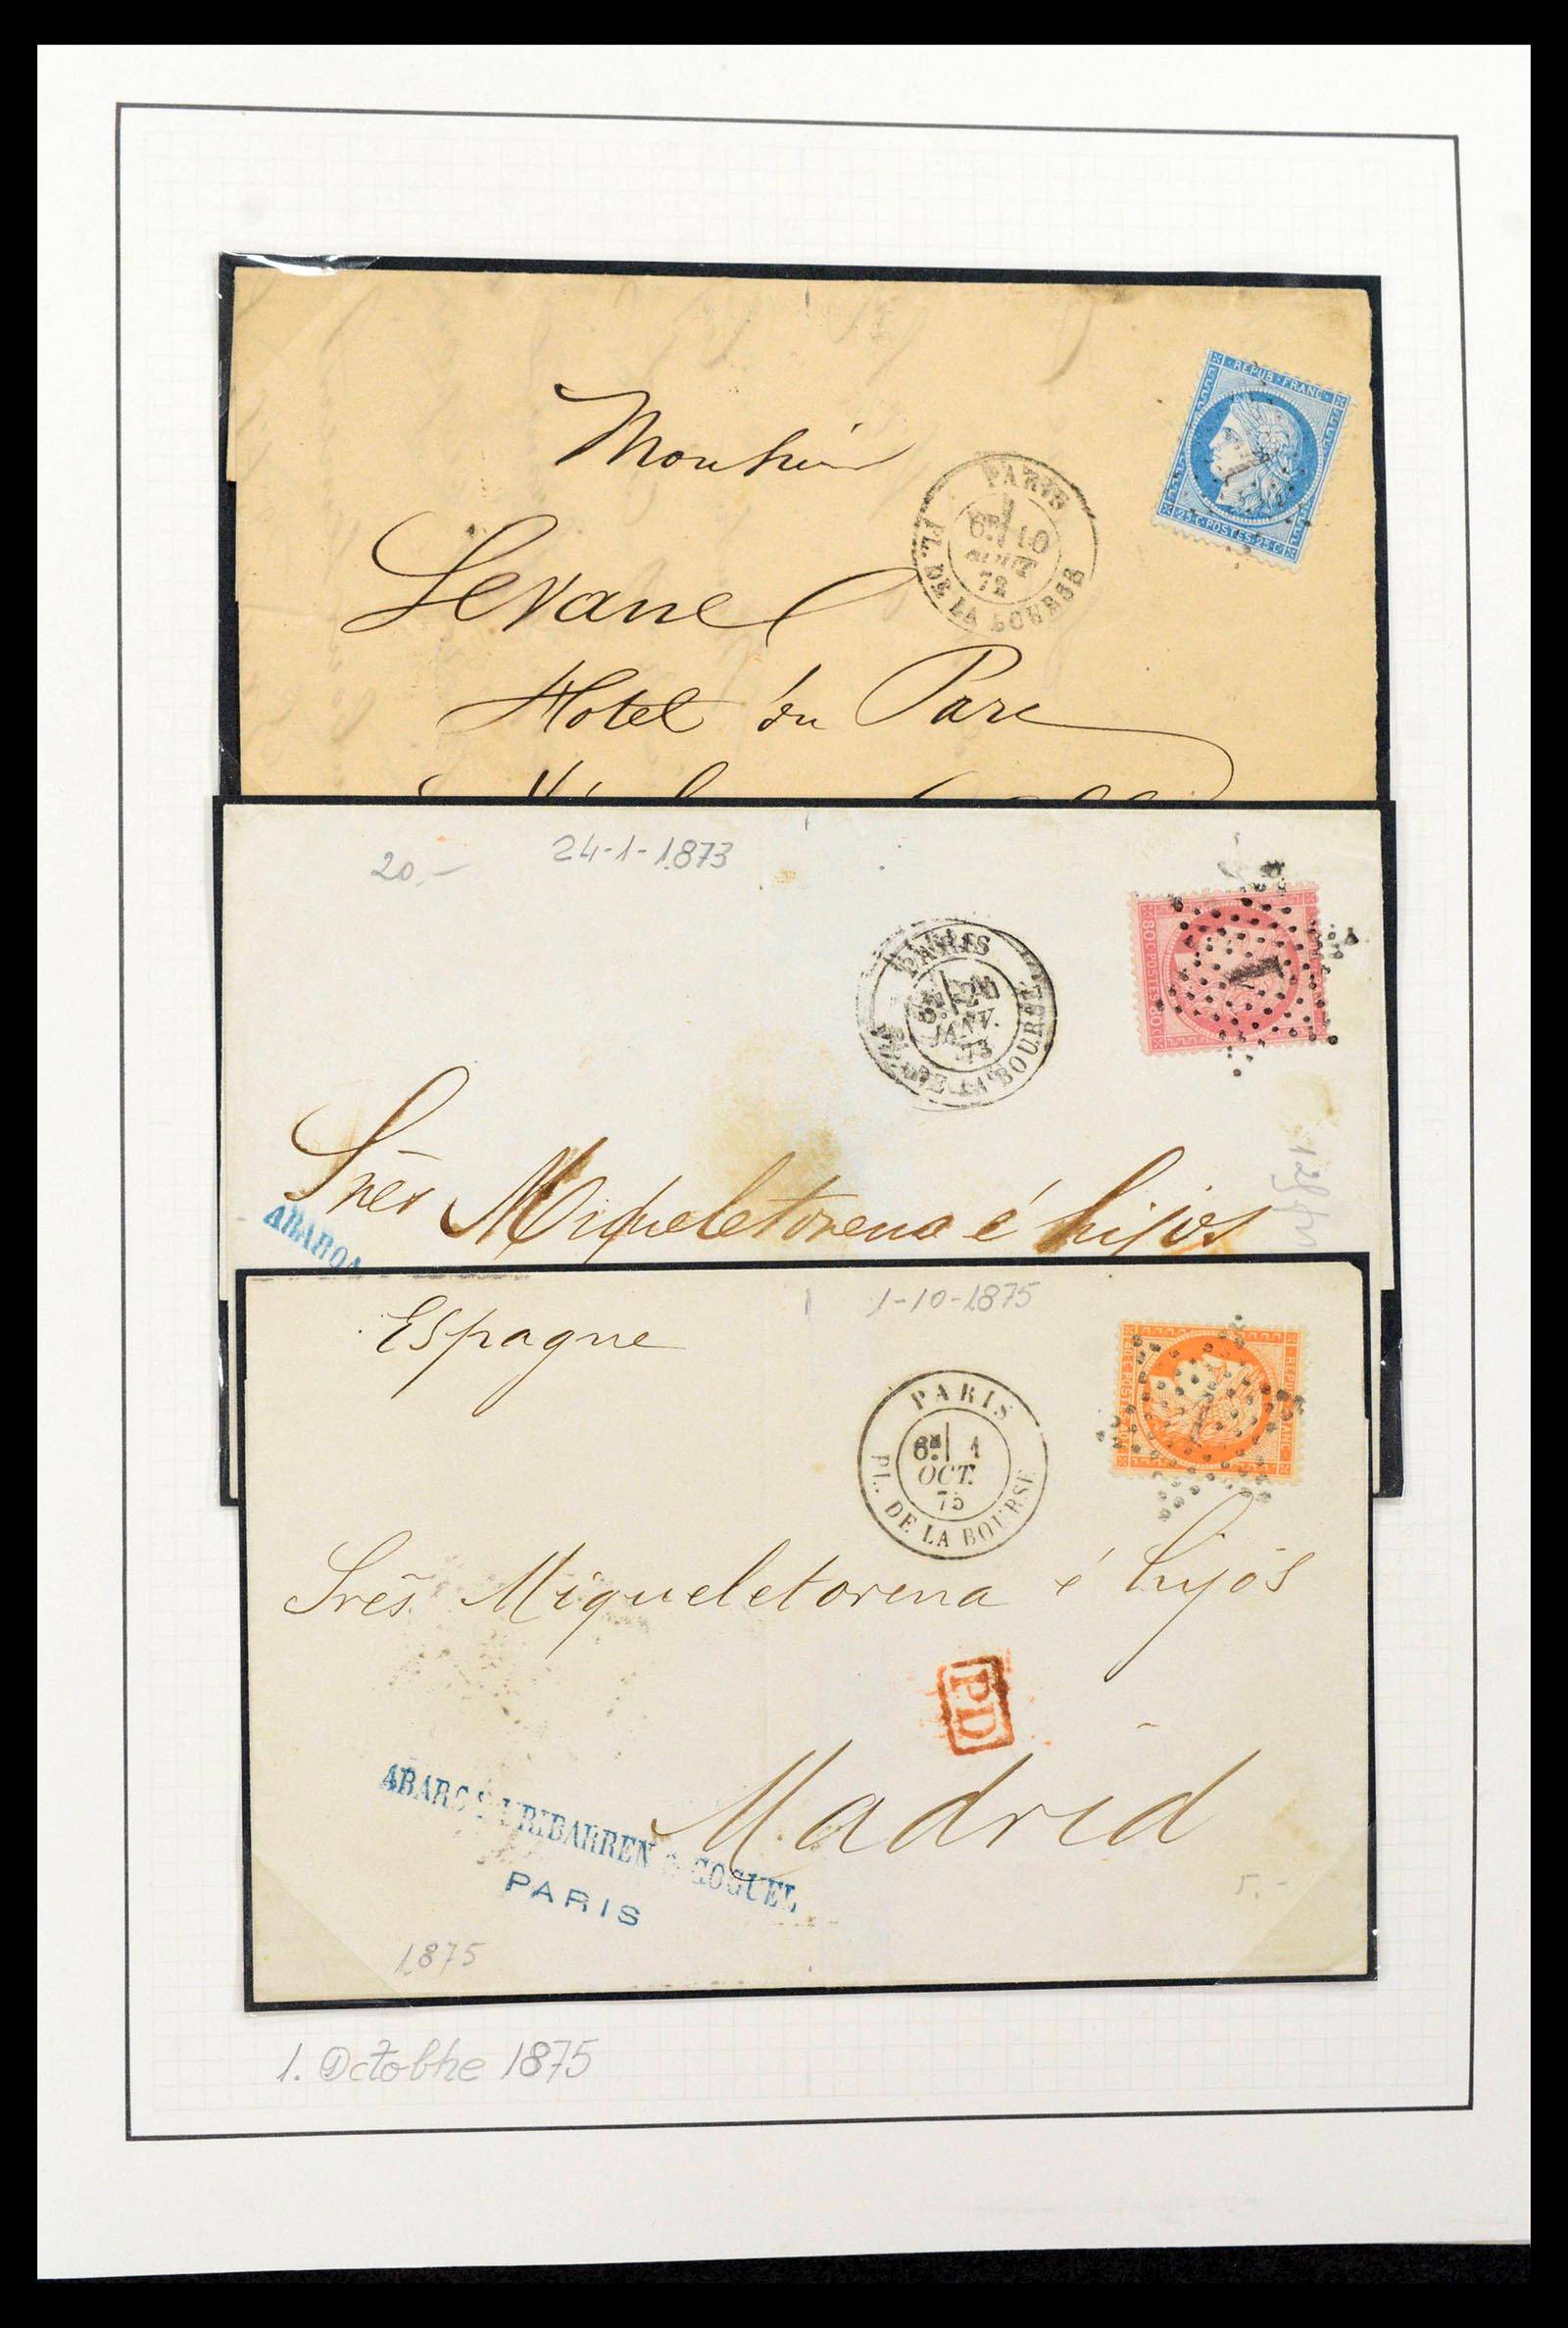 REPUB·FRANC·
25 C·POSTES·25 C
Monsieur
PARIS
6E 10
AOUT
72
PL. DE LA BOURSE
Hotel du Parc
20.-
24-1-1873
80C POSTES 80C
1
PARIS
JANV.
73
PL. DE LA BOURSE
Srès Miqueletorena é hijos
ABAROA
1-10-1875
Espagne
PARIS
6E 1
OCT.
75
PL. DE LA BOURSE
1
Srēs Miqueletorena é hijos
PD
Madrid
ABAROA URIBARREN & GOGUEL
PARIS
5.-
1875
1. Octobhe 1875